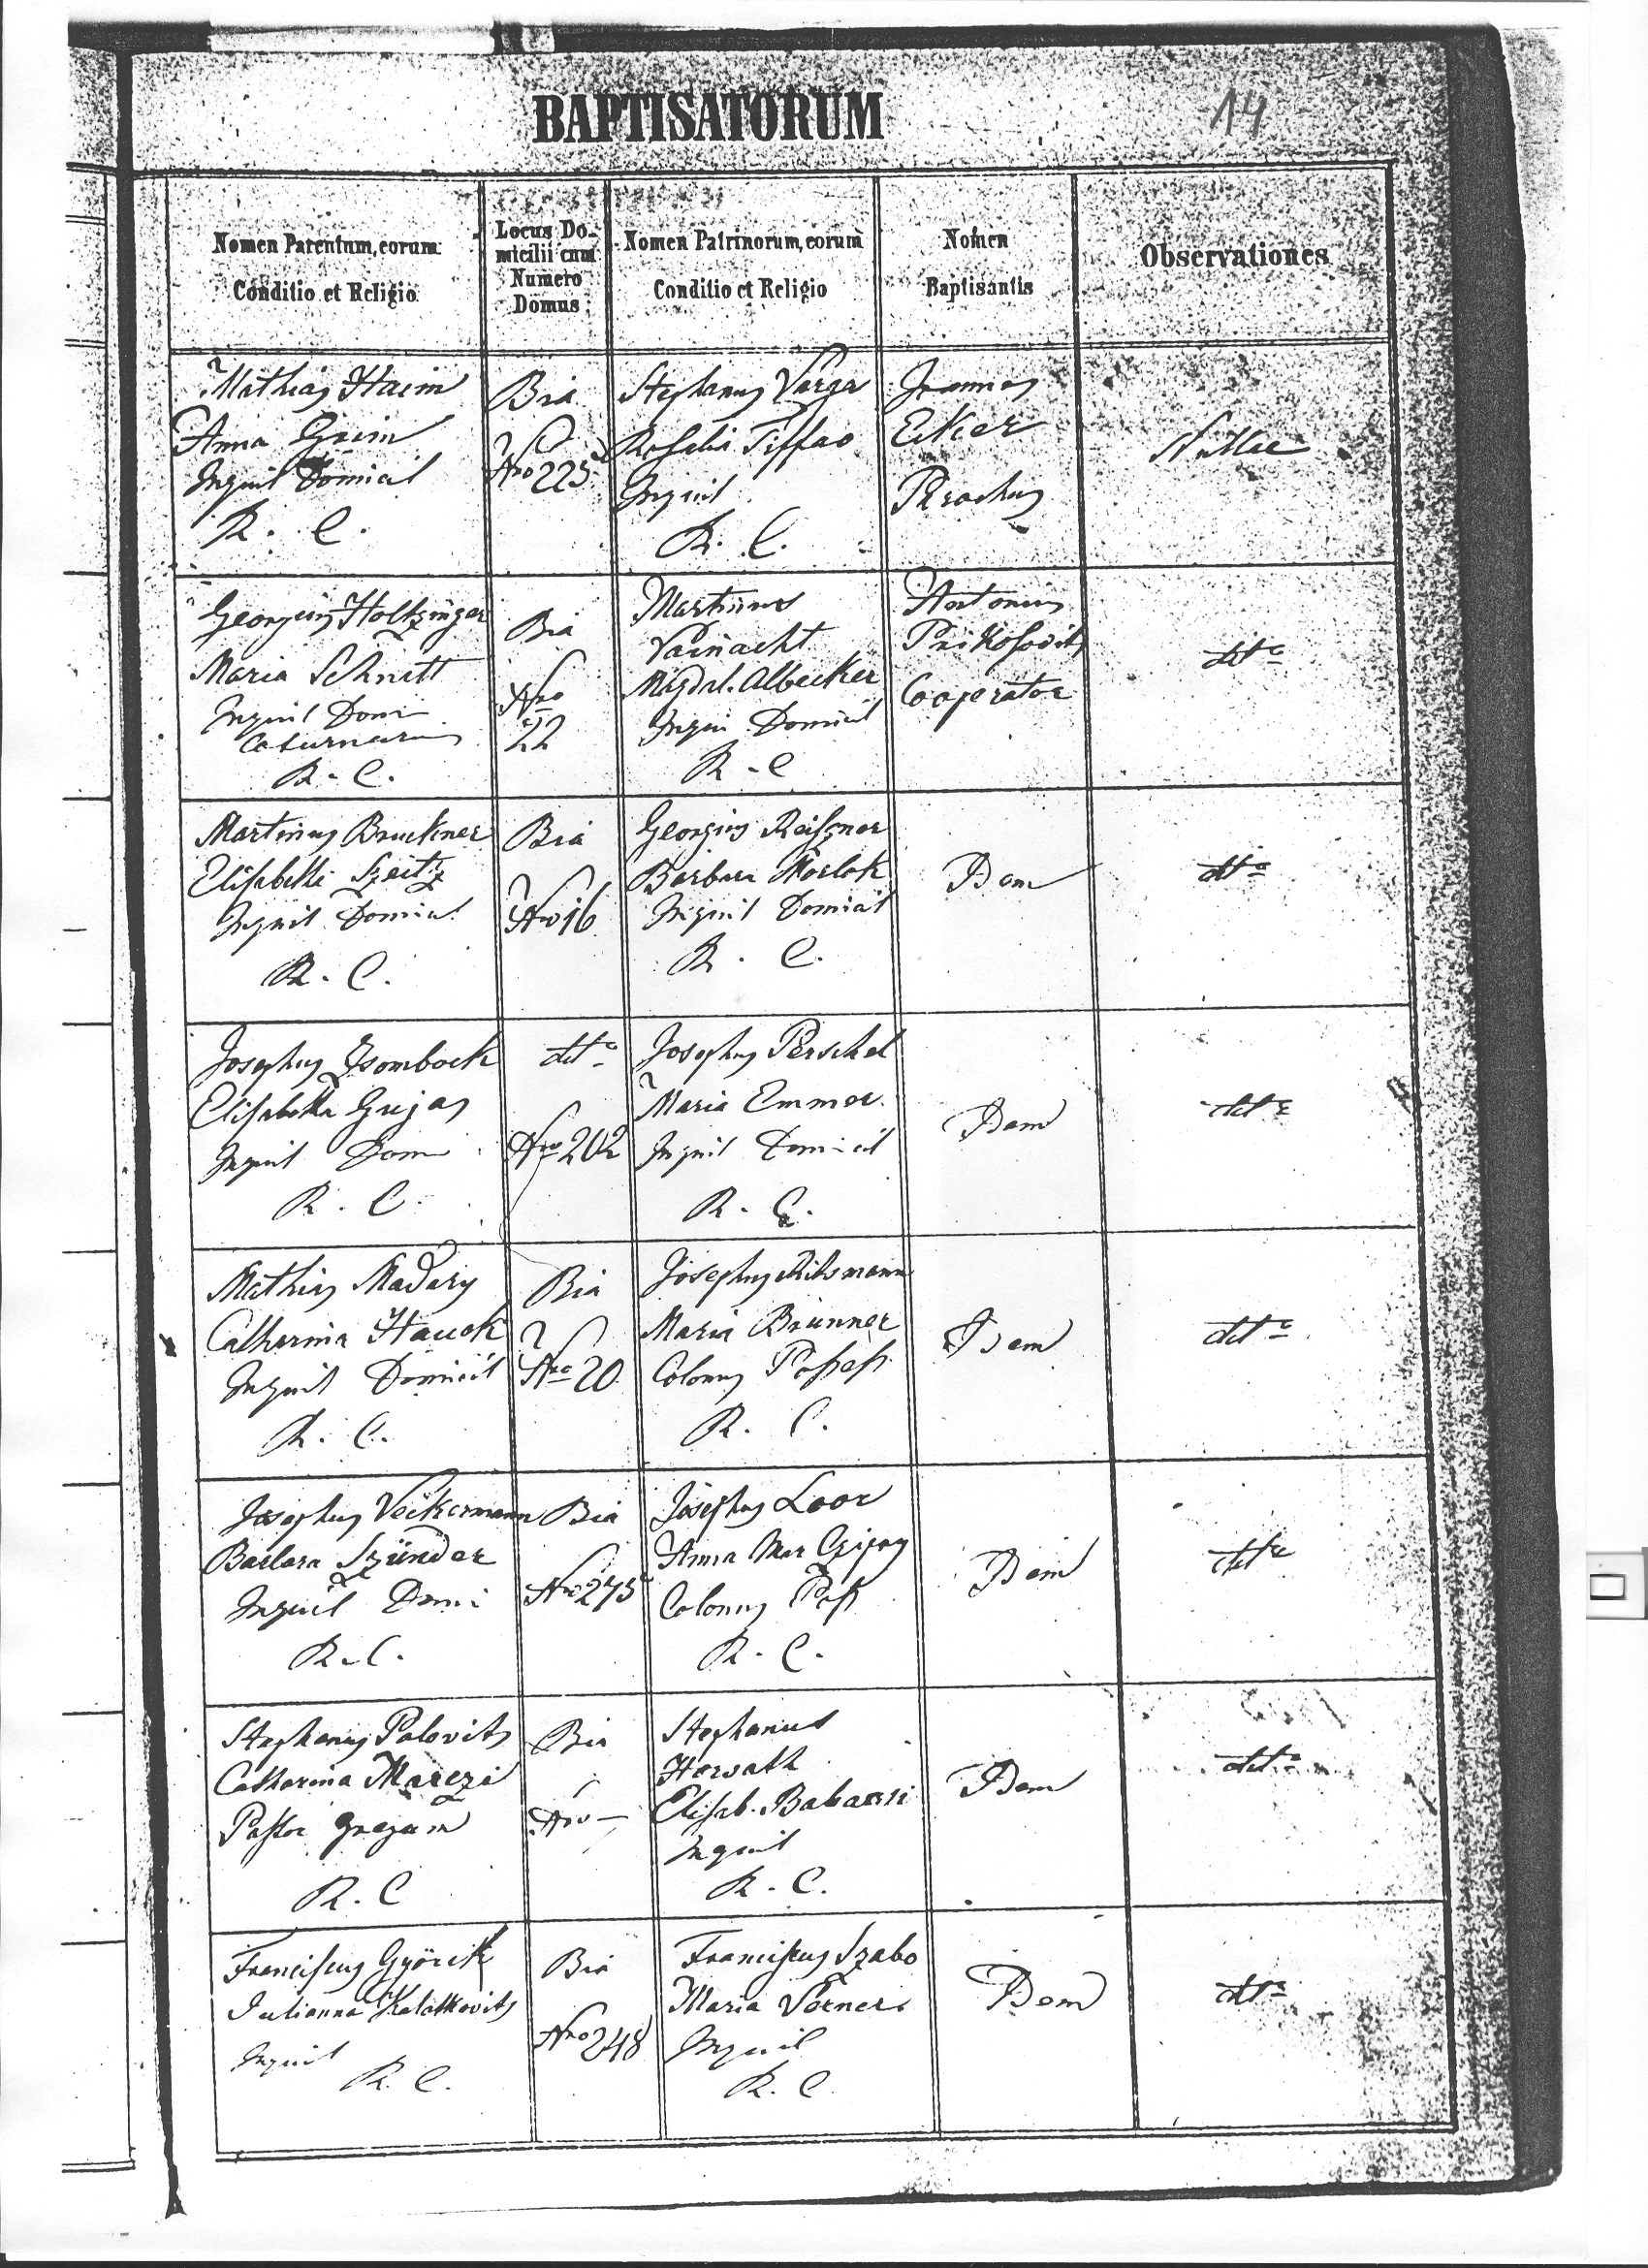 BAPTISATORUM
14
Nomen Parentum, eorum
Conditio et Religio
Locus Do-
micilii cum
Numero
Domus
Nomen Patrinorum, eorum
Conditio et Religio
Nomen
Baptisantis
Observationes
Mathias Haim
Anna Grim
Inquil Domicil
R. C.
Bia
Nro 225
Stephanus Varga
Rosalia
Inquil
R. C.
Ecker
Parochus
Nullae
Georgius Holtzinger
Maria Schnitt
Inquil Domi
R. C.
Bia
Nro
22
Martinus
Vainacht
Magdal. Albecker
Inqui Domicil
R. C
Antonius
Prikosovits
Cooperator
dtto
Martinus Bruckner
Elisabetha Szeitz
Inquil Domicil
R. C.
Bia
Nro 16
Georgius Reiszner
Barbara Morlok
Inquil Domicil
R. C.
Idem
dtto
Josephus Zsombock
Elisabetha Gujas
Inquil Domi
R. C.
dtto
Nro 202
Josephus Perschel
Maria Emmer
Inquil Domicil
R. C.
Idem
dtto
Mathias Madary
Catharina Hauck
Inquil Domicil
R. C.
Bia
Nro 20
Josephus
Maria Brunner
Colonus Possess
R. C.
Idem
dtto
Josephus Veckermann
Barbara Szünder
Inquil Domi
R. C.
Bia
Nro 275
Josephus Loor
Anna Mar
Colonus Poss
R. C.
Idem
dtto
Stephanus Palovits
Catharina Marczi
Pastor gregum
R. C
Bia
Nro —
Stephanus
Horvath
Elisab.
Inquil
R. C.
Idem
dtto
Franciscus Györik
Julianna Kalatkovits
Inquil
R. C.
Bia
Nro 248
Franciscus Szabo
Maria Verner
Inquil
R. C.
Idem
dtto